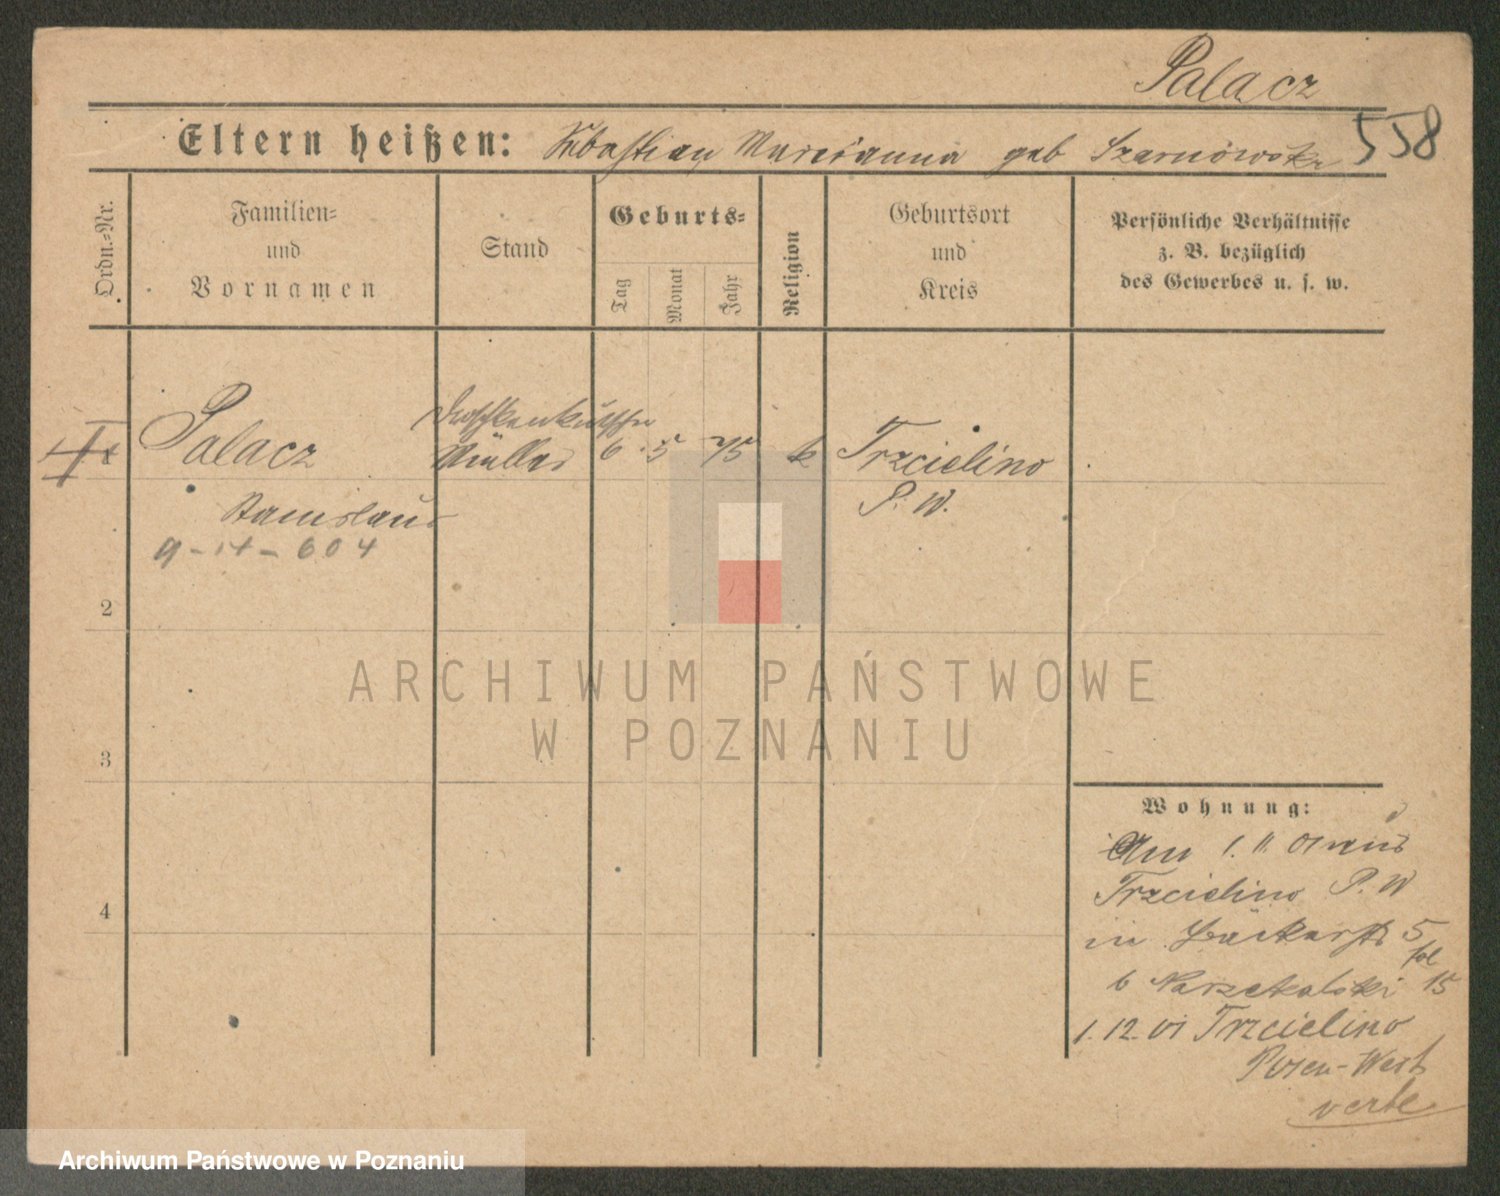 Palacz
558
Eltern heißen: Sebastian Marianna geb Szarnowska
Ordn.=Nr.
Familien=
und
Vornamen
Stand
Geburts=
Tag
Monat
Jahr
Religion
Geburtsort
und
Kreis
Persönliche Verhältnisse
z. B. bezüglich
des Gewerbes u. s. w.
Droschkenkutscher
Palacz Müller 6 5 75 k Trzcielino
Stanislaus P. W.
9-14-604
2
3
4
ARCHIWUM PAŃSTWOWE
W POZNANIU
Wohnung:
Am 1. 11. 01 aus
Trzcielino P. W
in Bäckerstr 5
b 15
1. 12. 01 Trzcielino
Posen-West
Archiwum Państwowe w Poznaniu